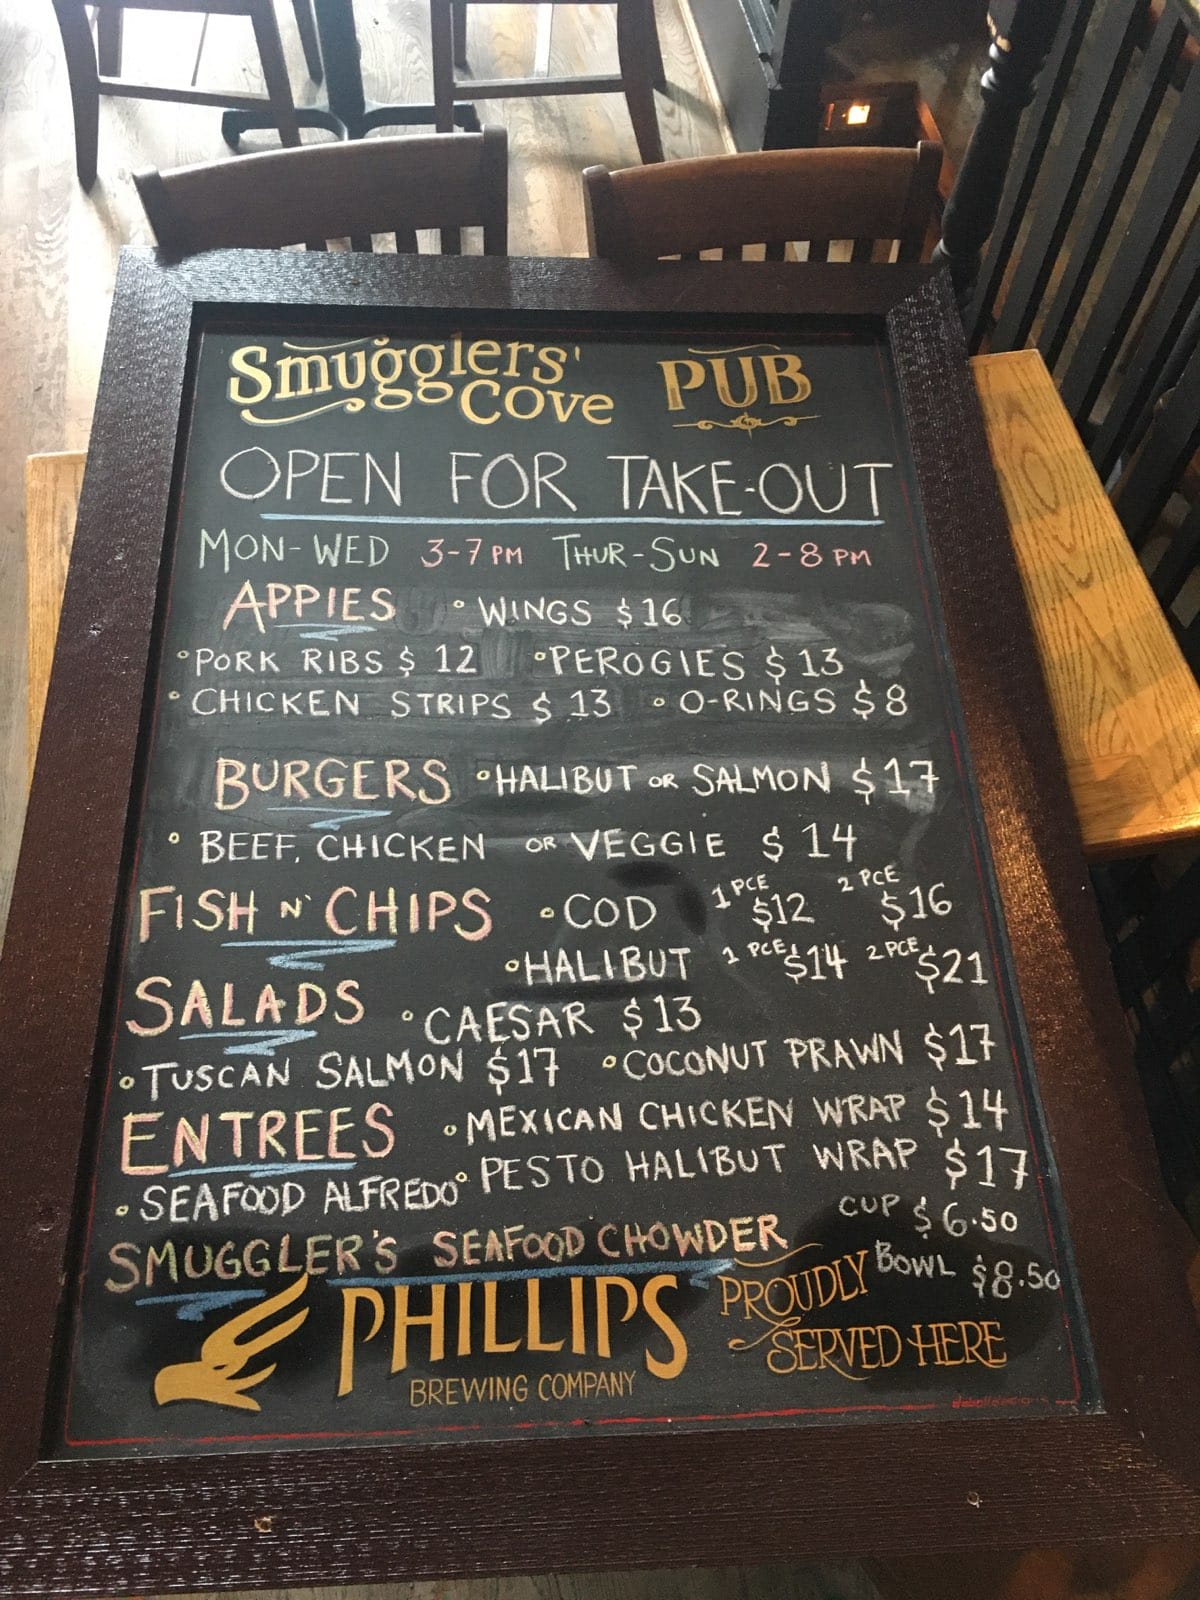 Smugglers' Cove PUB
OPEN FOR TAKE-OUT
MON-WED 3-7 PM THUR-SUN 2-8 PM
APPIES ° WINGS $16
° PORK RIBS $ 12 ° PEROGIES $ 13
° CHICKEN STRIPS $ 13 ° O-RINGS $8
BURGERS ° HALIBUT OR SALMON $17
° BEEF, CHICKEN OR VEGGIE $ 14
FISH N' CHIPS ° COD 1 PCE $12 2 PCE $16
° HALIBUT 1 PCE $14 2 PCE $21
SALADS ° CAESAR $13
° TUSCAN SALMON $17 ° COCONUT PRAWN $17
ENTREES ° MEXICAN CHICKEN WRAP $14
° SEAFOOD ALFREDO ° PESTO HALIBUT WRAP $17
SMUGGLER'S SEAFOOD CHOWDER CUP $6.50
BOWL $8.50
PHILLIPS
BREWING COMPANY
PROUDLY
SERVED HERE